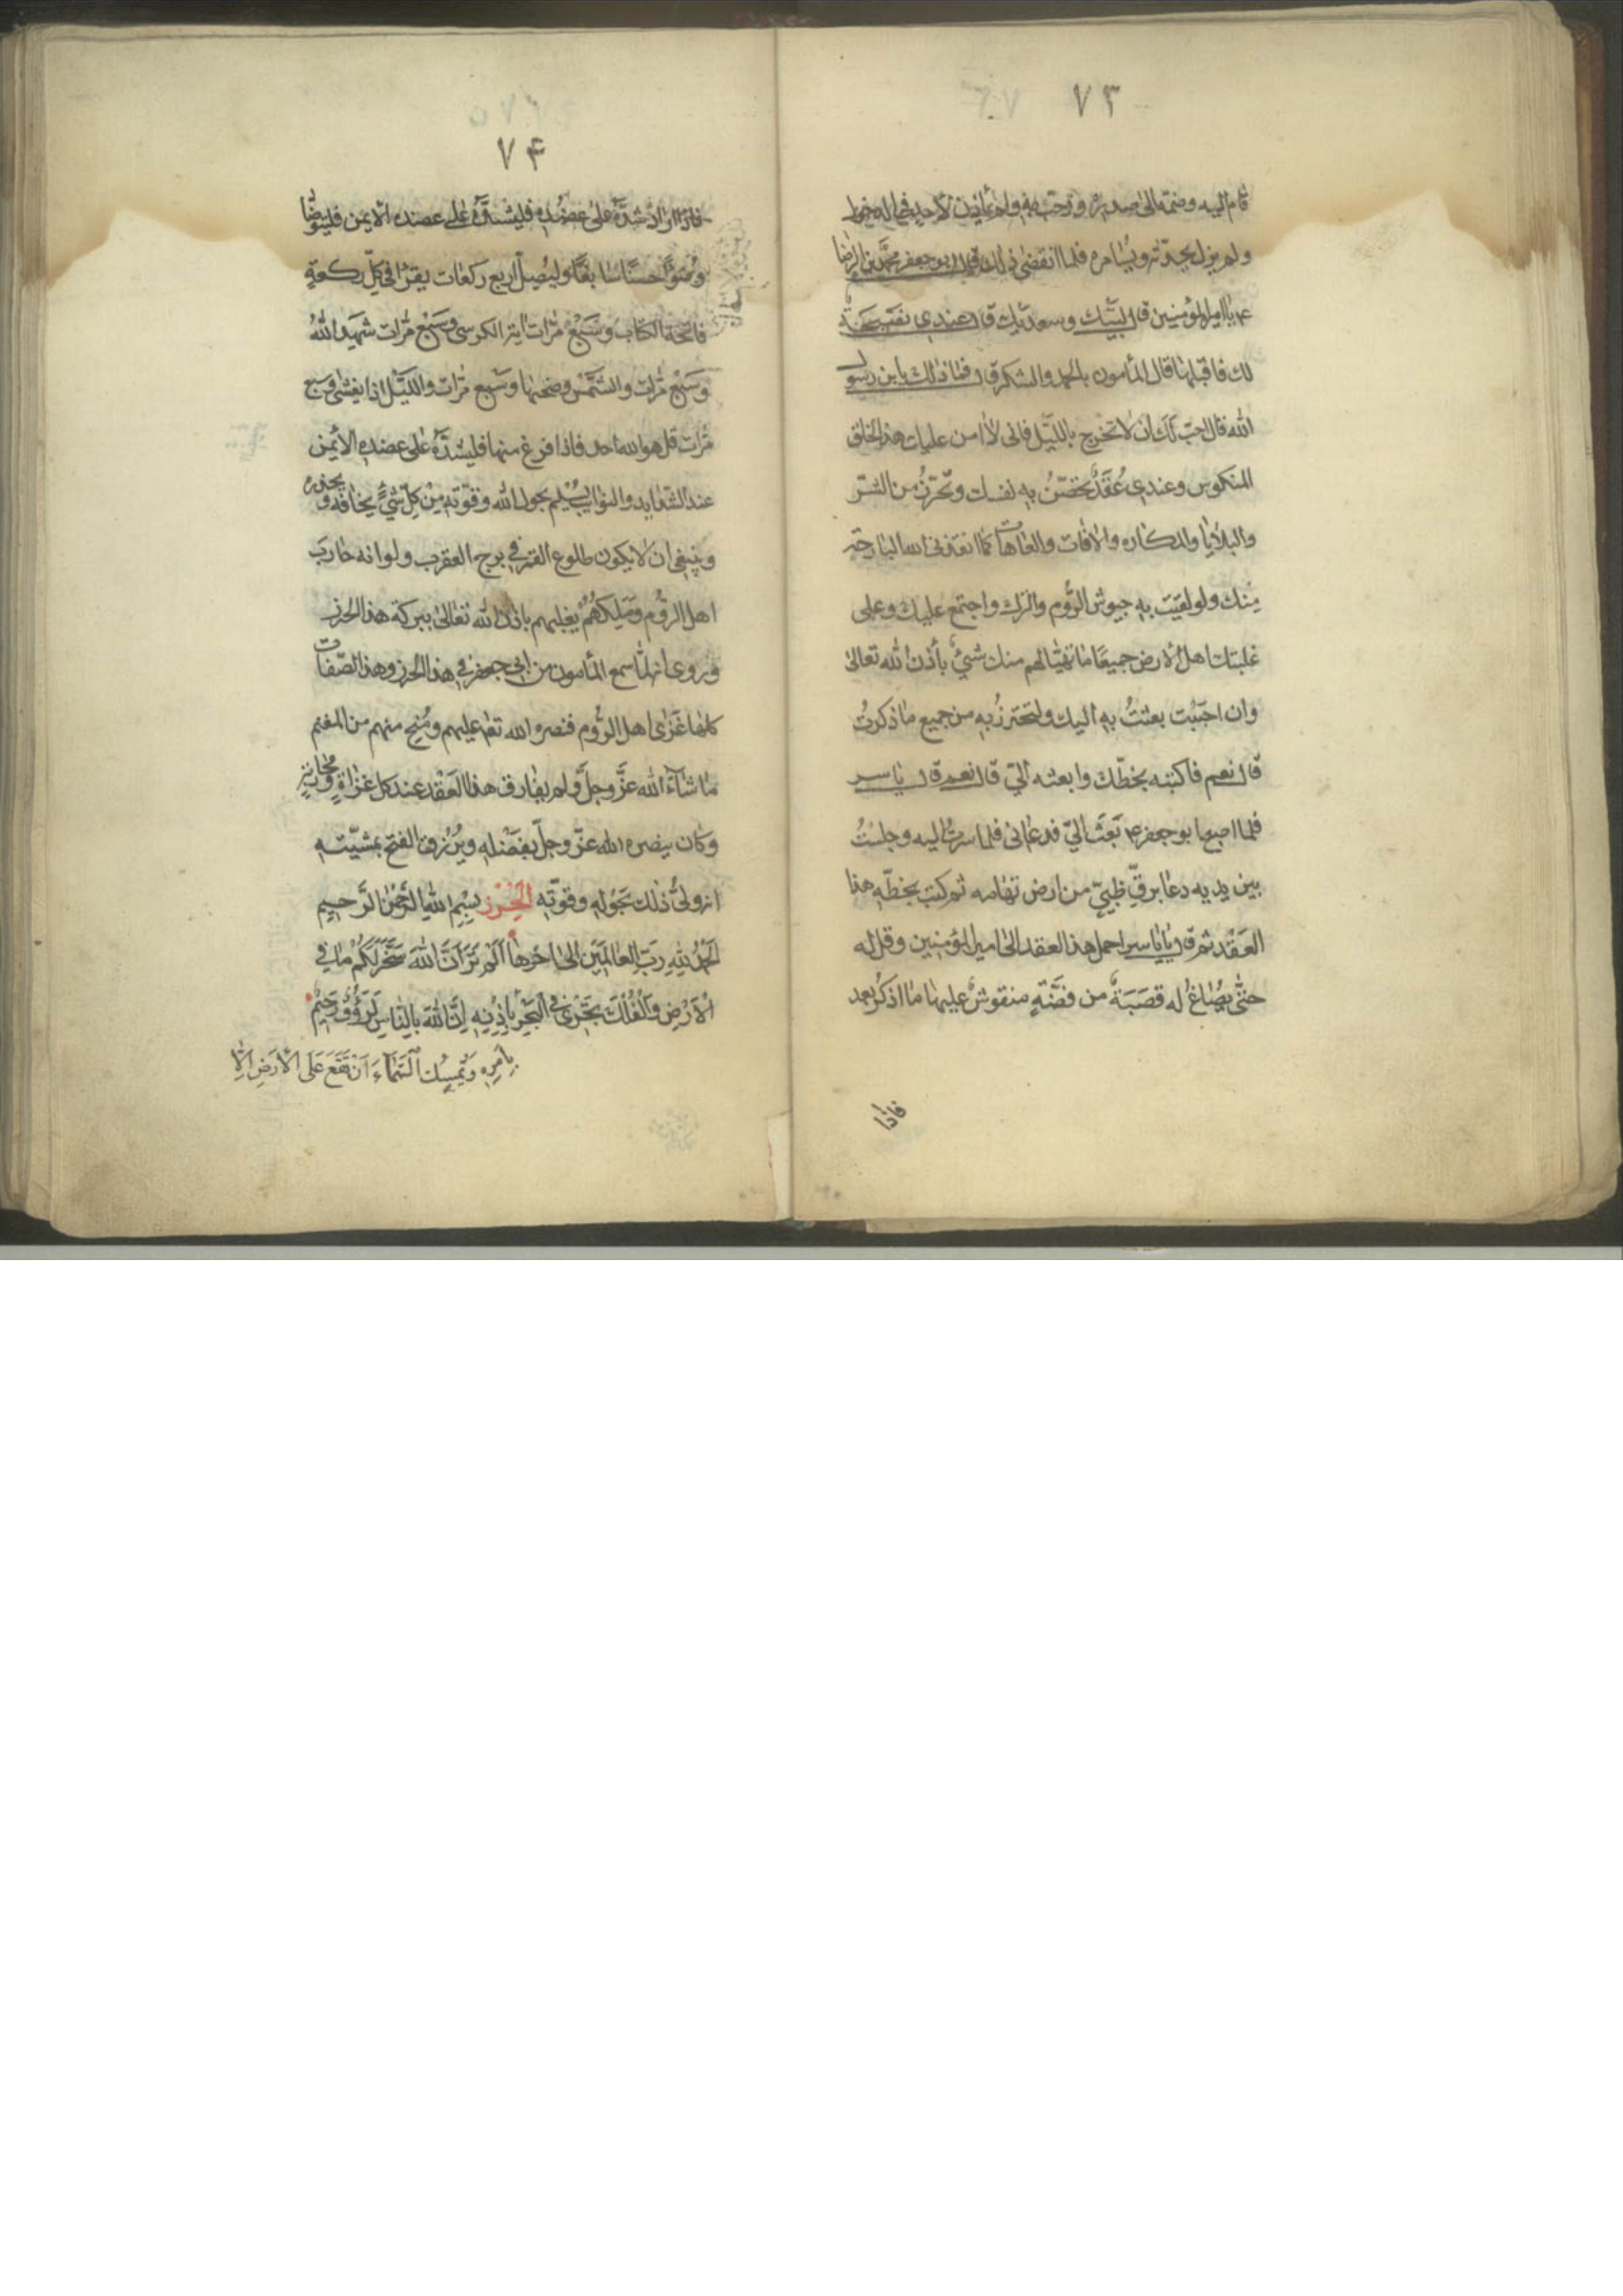 ٧٣
قام اليه وضمّه الى صدره ورحّب به ولم يأذن لاحد في الدخول
ولم يزل يحدّثه ويُسامره فلما انقضى ذلك قال ابو جعفر محمّد بن الرضا
ع يا امير المؤمنين قال لبّيك وسعديك قال عندي نصيحةٌ
لك فاقبلها قال المأمون بالحمد والشكر قال فما ذلك يا بن رسول
الله قال احبّ لك ان لا تخرج بالليّل فانى لا امن عليك هذا الخلق
المنكوس وعندى عُقَدٌ تحصّنُ به نفسك وتحرّزُ من الشرّ
والبلايا والمكاره والافات والعاهات كما انقذنى الله البارحة
مِنك ولو لقيَت به جيوش الرُّوم والترك واجتمع عليك وعلى
غلبتك اهل الارض جميعًا ما تهيّا لهم منك شيءٌ بأذن الله تعالى
وان احببت بعثتُ به اليك ولتحترزُ به من جميع ما ذكرتُ
قال نعم فاكتبه بخطّك وابعثه الىّ قال نعم قال ياسر
فلما اصبح ابو جعفر ع بَعَثَ الىّ فدعانى فلما سرتُ اليه وجلستُ
بين يديه دعا برقّ ظبيىّ من ارض تهامه ثم كتب بخطّه هذا
العَقْد ثم قال يا ياسر احمل هذا العقد الى امير المؤمنين وقل له
حتّى يُصاغُ له قصَبَةٌ من فضّةٍ منقوشٌ عليها ما اذكر بعد
فاذا
٧۴
فاذا اراد شدّهُ على عضُده فليشدّهُ على عضده الايمن فليتوضّا
وُضوءً حسنًا سابغًا وليُصلّ اربع ركعات يقرُا في كلّ ركعةٍ
فاتحة الكتاب وسَبْعُ مّرات اية الكرسى وسَبْع مّرات شهد اللهُ
وسَبْع مّرات والشَّمْس وضحيها وسَبْع مّرات والليّل اذا يغشى وسبع
مّرات قل هو الله احد فاذا فرغ منها فليشدّهُ على عضده الأيمن
عند الشدايد والنوايب يسْلم بحول الله وقوّته مِنْ كلّ شئٍ يخافه ويحذره
وينبغى ان لا يكون طلوع القمر في برج العقرب ولو انه حاربَ
اهل الرّوم ومَلِكهُمْ يغلبهم باذن الله تعالى ببركة هذا الحرز
وروى انه لمّا سمع المأمون من ابى جعفر في هذا الحرز وهذا الصّفات
كلها غَزى اهل الرُّوم فنصره الله تع عليهم ومُنح منهم من المغنم
ما شاءَ الله عزَّ وجلَّ ولم يفارق هذا العَقْد عند كل غزاةٍ ومحاربةٍ
وكان ينصره الله عزّ وجلّ بفَضْله ويُرْزق الفتح بمشيّته
انه ولىُّ ذلك بحَوْله وقوّته الحِرْز بِسْمِ اللهِ الرَّحْمنِ الرَّحيمِ
الحَمْدُ للهِ رَبِّ العالَمين الى اخرها اَلَمْ تَرَ اَنَّ اللهَ سَخَّرَ لَكُمْ ما في
الْاَرْضِ وَالْفُلْكَ تَجْرى في الْبَحْرِ بِاِذْنِه اِنَّ اللهَ بِالنّاسِ لَرَؤُفٌ رَحيمٌ
بِاَمْرِه وَيُمْسِكُ السَّماءَ اَنْ تَقَعَ عَلَى الاَرْضِ اِلّا